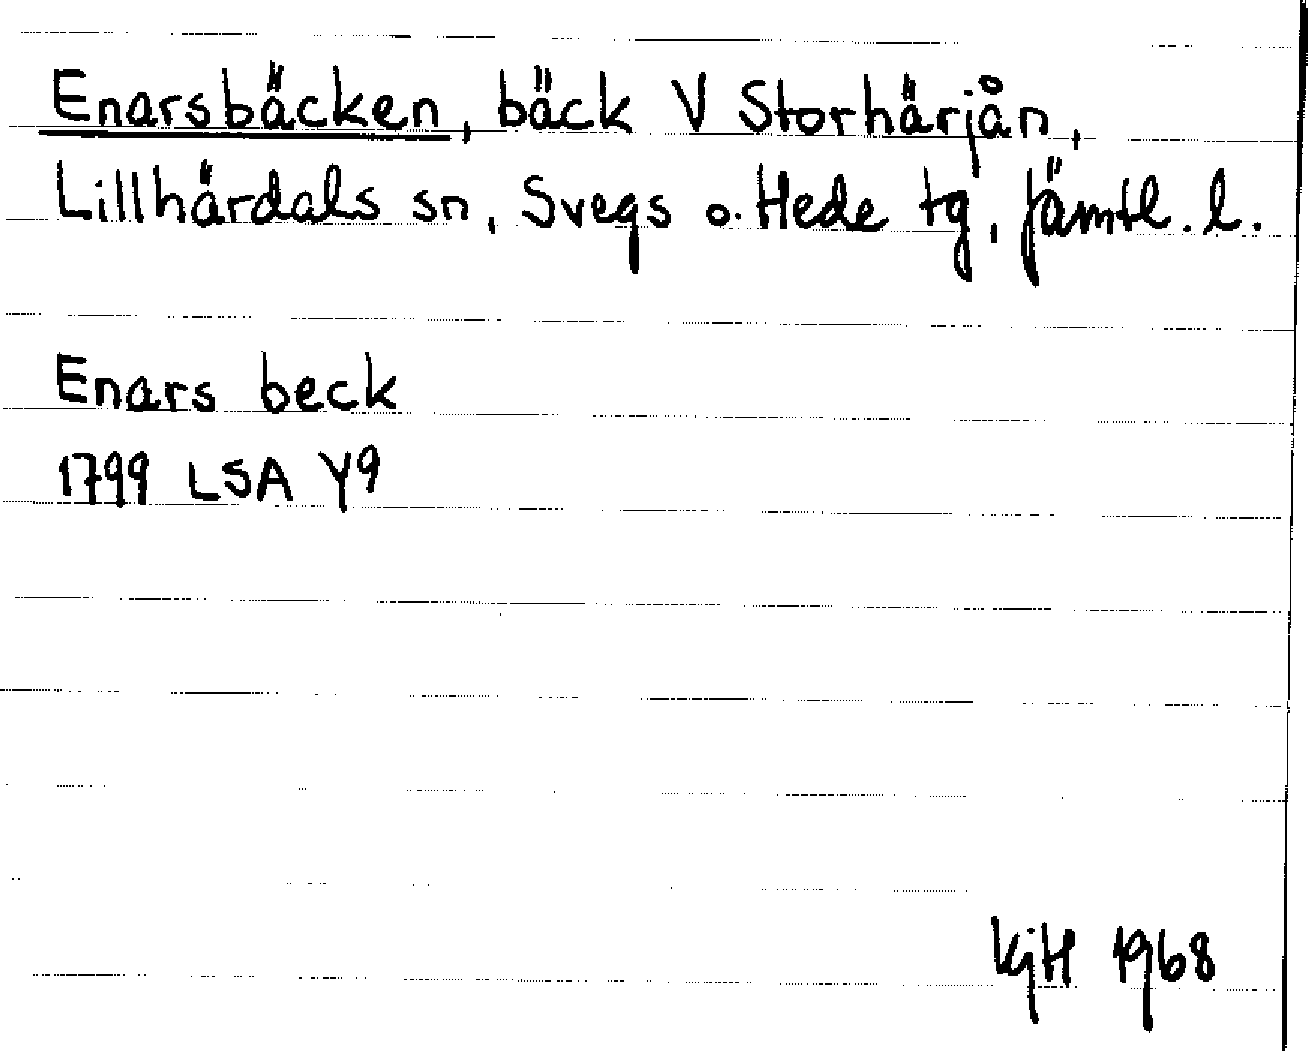 Enarsbäcken, bäck V Storhärjån,
Lillhärdals sn, Svegs o. Hede tg, Jämtl. l.
Enars beck
1799 LSA Y9
KjH 1968